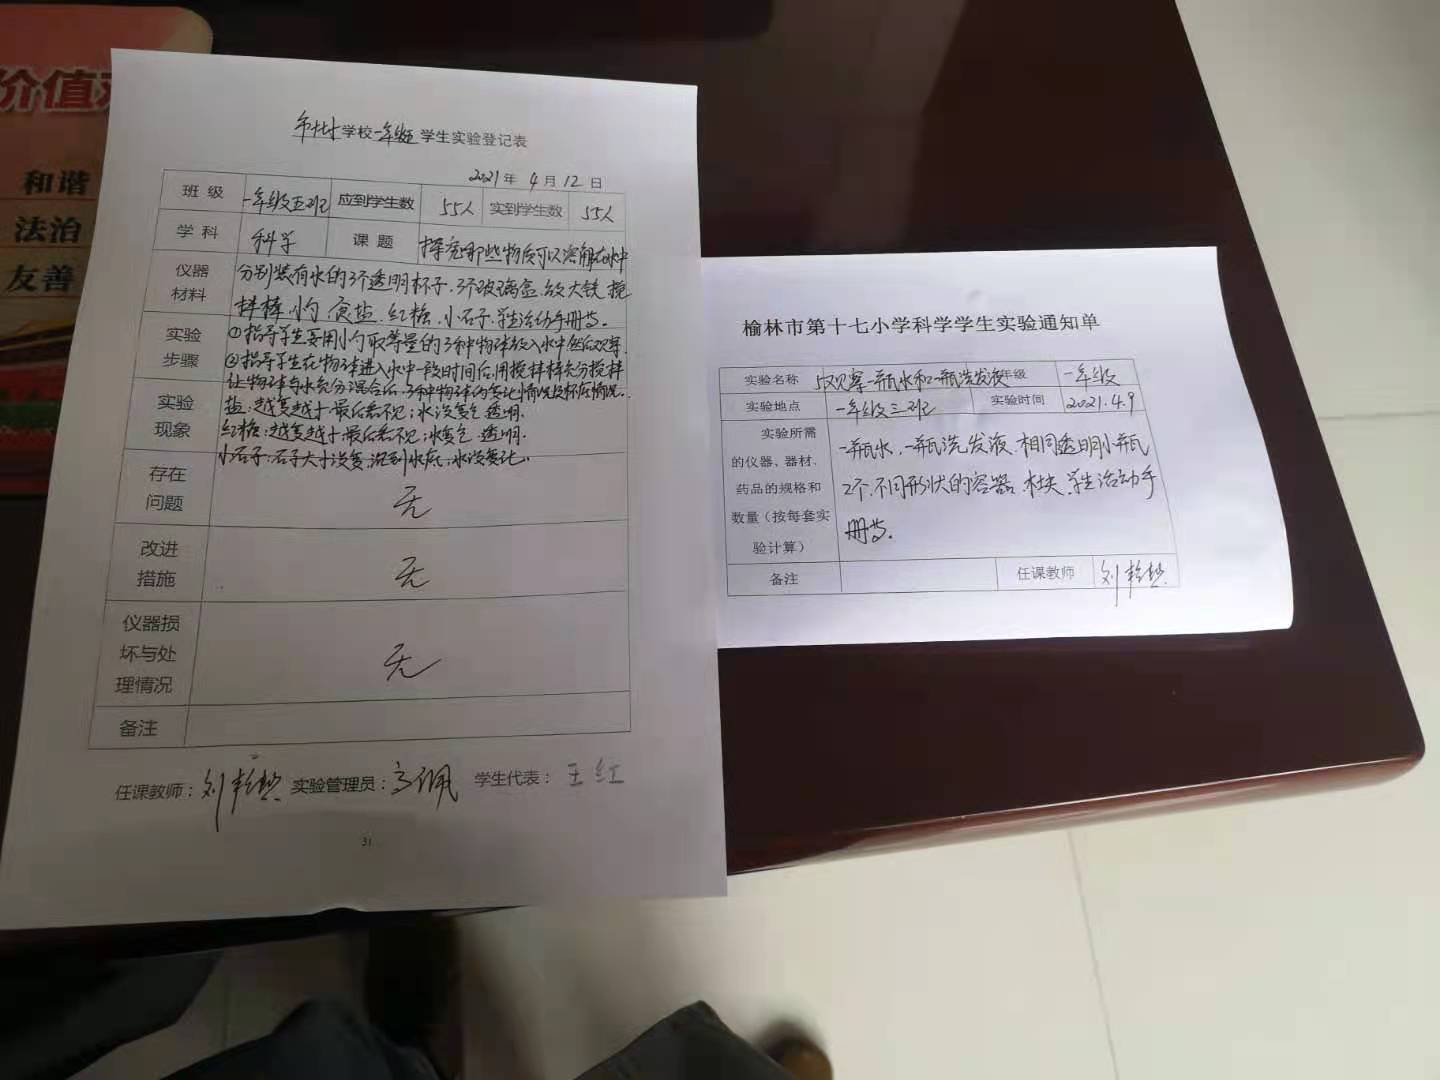 价值
和谐
法治
友善
市十七小学校一年级 学生实验登记表
2021年 4月12日
班级 一年级五班 应到学生数 55人 实到学生数 55人
学科 科学 课题 探究哪些物质可以溶解在水中
仪器材料 分别装有水的3个透明杯子、3个玻璃盒、放大镜、搅
拌棒、小勺、食盐、红糖、小石子、学生活动手册等。
实验步骤 ①指导学生要用小勺取等量的3种物体放入水中然后观察。
②指导学生在物体进入水中一段时间后,用搅拌棒充分搅拌
让物体与水充分混合后,3种物体的变化情况
实验现象 盐:越变越小最后看不见;水没变色 透明.
红糖:越变越小最后看不见;水变色 透明.
小石子:石子大小没变,沉到水底,水没变化.
存在问题 无
改进措施 无
仪器损坏与处理情况 无
备注
任课教师:刘艳 实验管理员:高佩 学生代表:王红
31
榆林市第十七小学科学学生实验通知单
实验名称 观察一瓶水和一瓶洗发液 年级 一年级
实验地点 一年级三班 实验时间 2021.4.9
实验所需
的仪器、器材、
药品的规格和
数量(按每套实
验计算)
一瓶水、一瓶洗发液、相同透明小瓶
2个、不同形状的容器、木块、学生活动手
册等.
备注 任课教师 刘艳